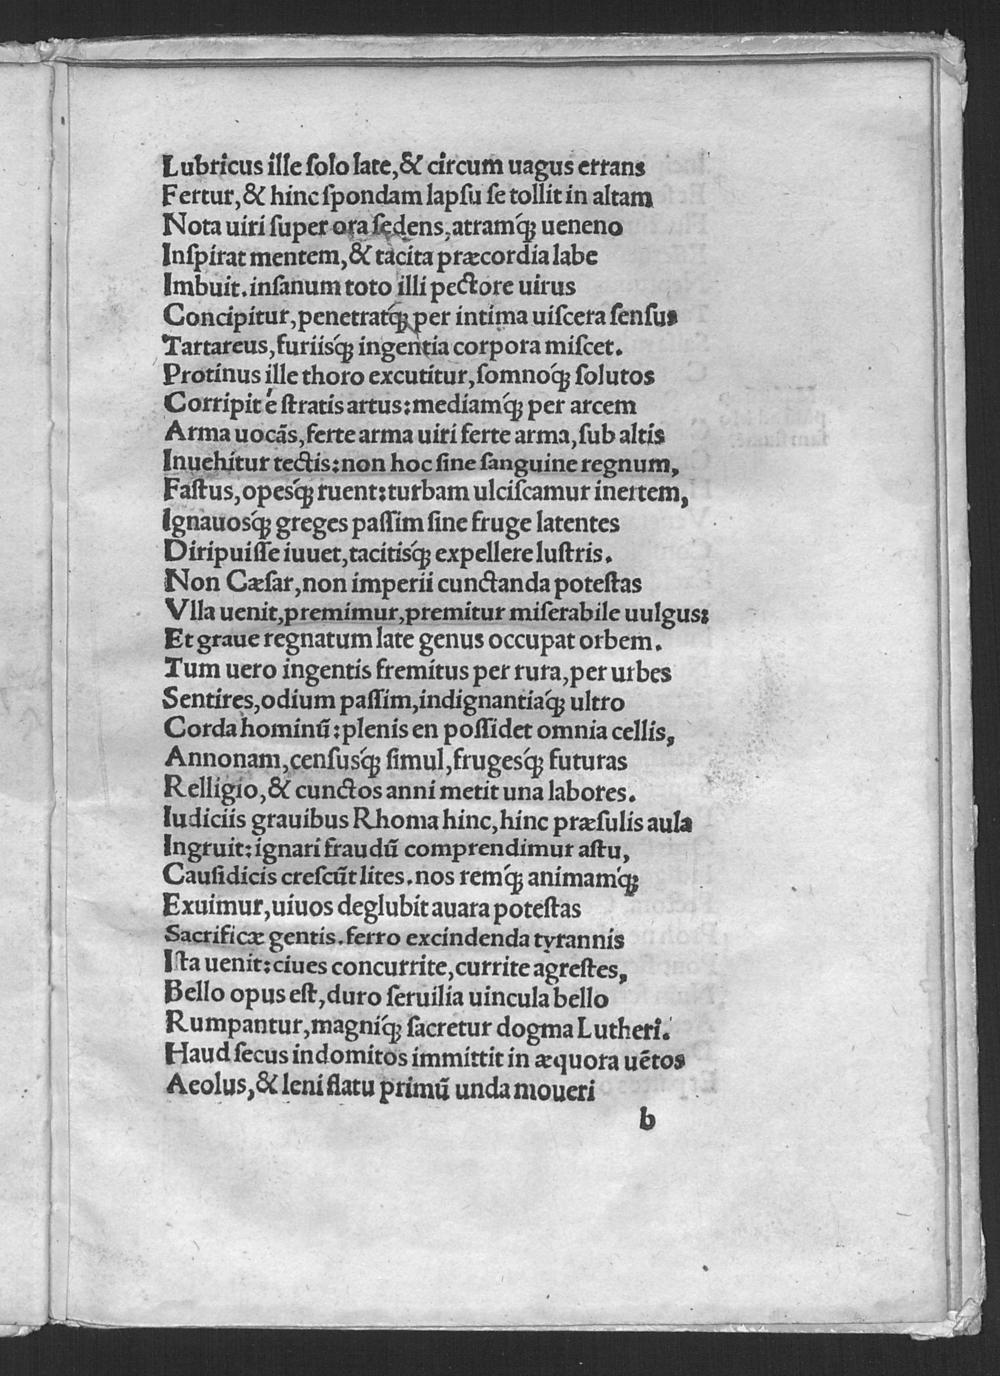 Lubricus ille ſolo late,& circum uagus errans
Fertur,& hinc ſpondam lapſu ſe tollit in altam
Nota uiri ſuper ora ſedens, atramq́ꝫ ueneno
Inſpirat mentem,& tacita præcordia labe
Imbuit. inſanum toto illi pectore uirus
Concipitur, penetratq́ꝫ per intima uiſcera ſenſus
Tartareus, furiisq́ꝫ ingentia corpora miſcet.
Protinus ille thoro excutitur, ſomnoq́ꝫ ſolutos
Corripit é ſtratis artus: mediamq́ꝫ per arcem
Arma uocãs, ferte arma uiri ferte arma, ſub altis
Inuehitur tectis: non hoc ſine ſanguine regnum,
Faſtus, opesq́ꝫ ruent: turbam ulciſcamur inertem,
Ignauosq́ꝫ greges paſſim ſine fruge latentes
Diripuiſſe iuuet, tacitisq́ꝫ expellere luſtris.
Non Cæſar, non imperii cunctanda poteſtas
Vlla uenit, premimur, premitur miſerabile uulgus:
Et graue regnatum late genus occupat orbem.
Tum uero ingentis fremitus per rura, per urbes
Sentires, odium paſſim, indignantiaq́ꝫ ultro
Corda hominũ: plenis en poſſidet omnia cellis,
Annonam, cenſusq́ꝫ ſimul, frugesq́ꝫ futuras
Relligio, & cunctos anni metit una labores.
Iudiciis grauibus Rhoma hinc, hinc præſulis aula
Ingruit: ignari fraudũ comprendimur aſtu,
Cauſidicis creſcũt lites. nos remq́ꝫ animamq́ꝫ
Exuimur, uiuos deglubit auara poteſtas
Sacrificæ gentis. ferro excindenda tyrannis
Iſta uenit: ciues concurrite, currite agreſtes,
Bello opus eſt, duro ſeruilia uincula bello
Rumpantur, magniq́ꝫ ſacretur dogma Lutheri.
Haud ſecus indomitos immittit in æquora uẽtos
Aeolus, & leni flatu primũ unda moueri
b